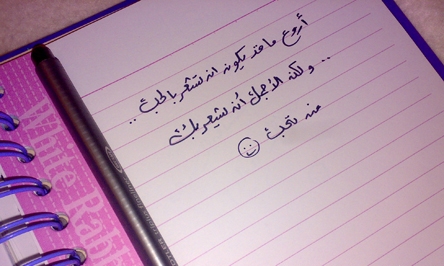 أروع ما قد يكون ان تشعر بالحب ..
.. ولكن الاجمل أن يشعر بك
من تحب
White Rab